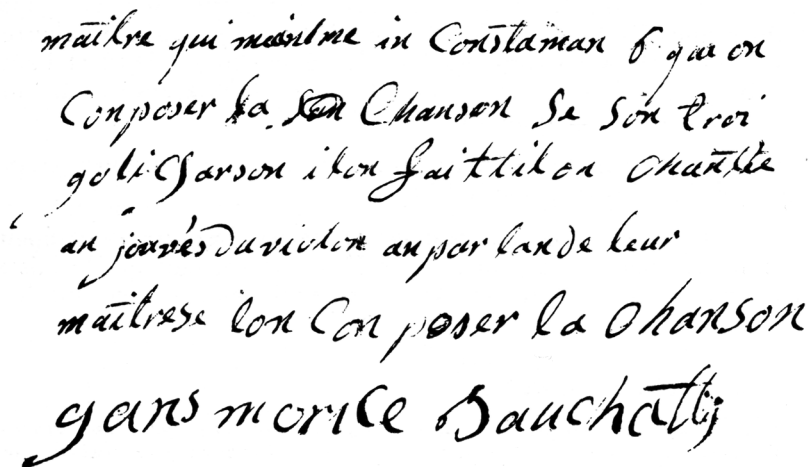 maitre qui maintme in Constaman 6 qui on
Conposer la son Chanson Se son troi
goli Garson ilon fait til on Chantée
an jouvés du violon an par lan de leur
maitrese ilon Con poser la Chanson
gans morice Bauchatty